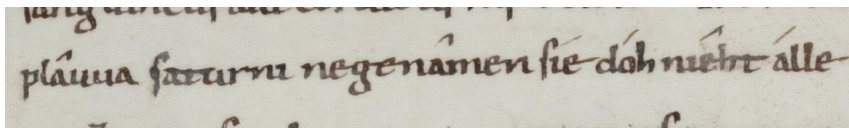 plâuua saturni negenâmen sîe dóh nîeht álle